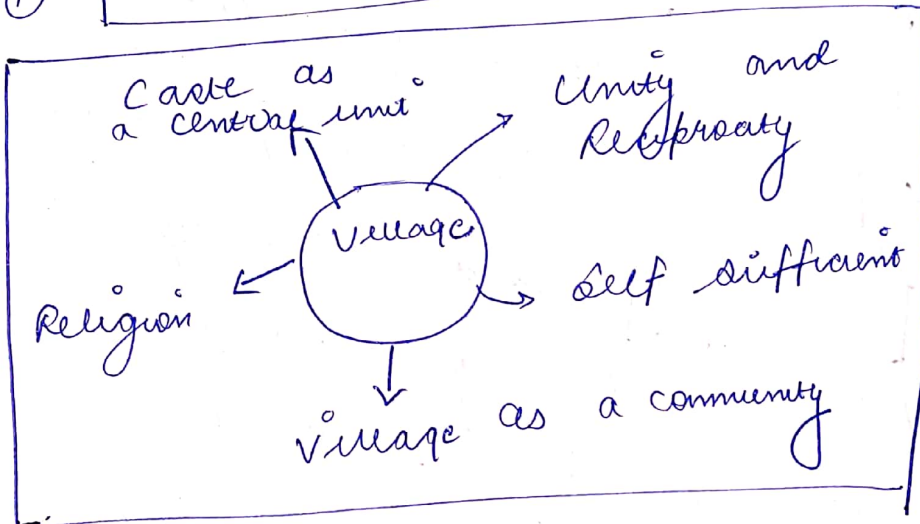 Caste as
a central unit
Unity and
Reciprocity
Village
Self sufficient
Religion
Village as a community